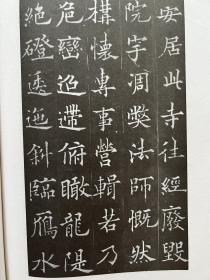 安居此寺往經廢毀
院宇凋弊法師慨然
構懷專事營輯若乃
危巒迢遰俯瞰龍堤
絕磴逶迤斜臨鴈水